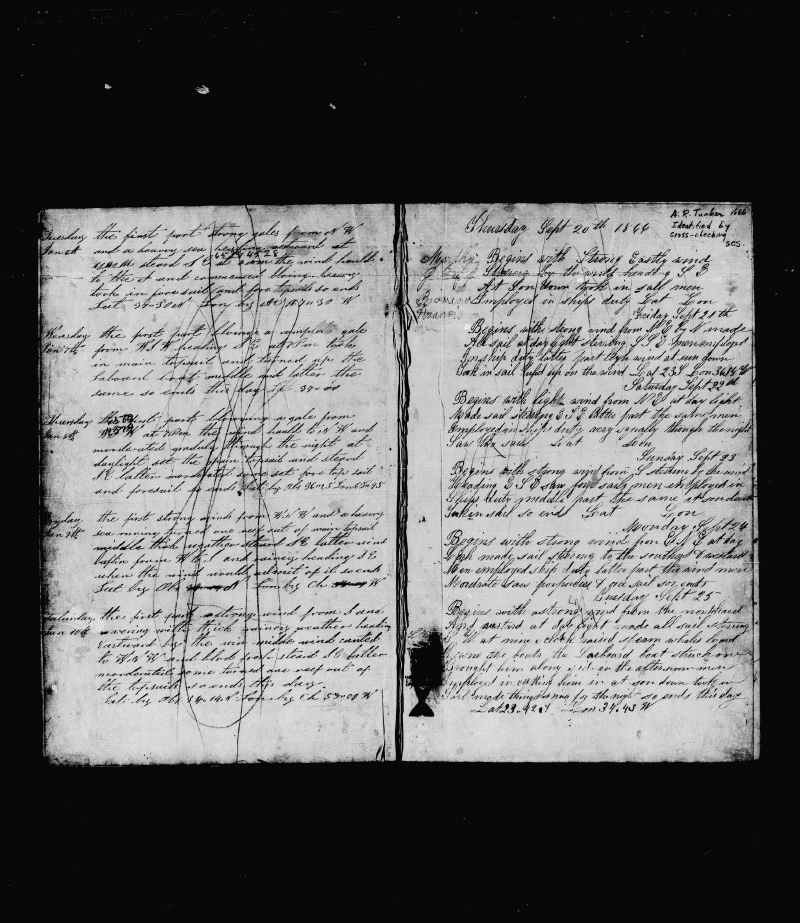 Tuesday the first part strong gales from N W
Jan 6th and a heavy sea heading eastward at
steard S E at 2 am the wind hauld
to the and commenced blowing heavy
took in foresail and fore topsail so ends
Wensday the first part blowing a complete gale
Jan 7th from W S W heading S E at Non took
in main topsail and turned up the
labourd boat middle and latter the
same so ends this day
Thursday first part blowing a gale from
Jan 8th at 7 Pm the wind hauld to W and
moderated graduly through the night at
daylight set the main topsail and steard
S E latter moderated some set fore top sail
and foresail so ends Lat by Ob 36=05 Lon 65=45
Fryday the first strong wind from W S W and a heavy
Jan 9th sea runing turned one reef out of main topsail
middle thick weather steard S E latter wind
baflin from W to S and rainey heading S E
when the wind would admit of it so ends
Lat by Obs Lon by Ch W
Saturday the first part a strong wind from S and
Jan 10th with thick rainey weather heading
eastward by the wind middle wind canted
to W S W and blod fresh steard S E latter
moderated some turned one reef out of
the topsails so ends this day
Lat by Obs Lon by Ch 53=09 W
A. R. Tucker 1866
Identified by
cross-checking
SCS.
Thursday Sept 20th 1866
Begins with Strong Eastly wind
Stearing by the wind heading S E
At Son down took in sail men
Employed in ships duty Lat Lon
Friday Sept 21th
Begins with strong wind from N E by N made
All sail at day light stering S S E men employed
In ship duty latter part wind at sun down
took in sail luft up on the wind Lat 23 S Lon 36 18 W
Saturday Sept 22th
Begins with light wind from N E at day light
Made sail stering E S E latter part the same men
Employed in ships duty very squaly though the night
Saw two sails Lat Lon
Sunday Sept 23
Begins with strong wind from S stering by the wind
Heading E S E saw four sails men employed in
Ships duty middle part the same at sondown
Taken in sail so end Lat Lon
Monday Sept 24
Begins with strong wind from E N E at day
light made sail stering to the southard & eastward
Men employed ship duty latter part the wind more
Mordrate saw porpoises & one sail so ends
Tuesday Sept 25
Begins with a strong wind from the northard
And eastard at day light made all sail stering
at nine oclock raised sperm whales lowerd
Down two boats the Larboard boat struck one
brought him along side in the afternoon men
Employed in cutting him in at son down took in
Sail made things snug for the night so ends this day
Lat 29.42 S Lon 34.43 W